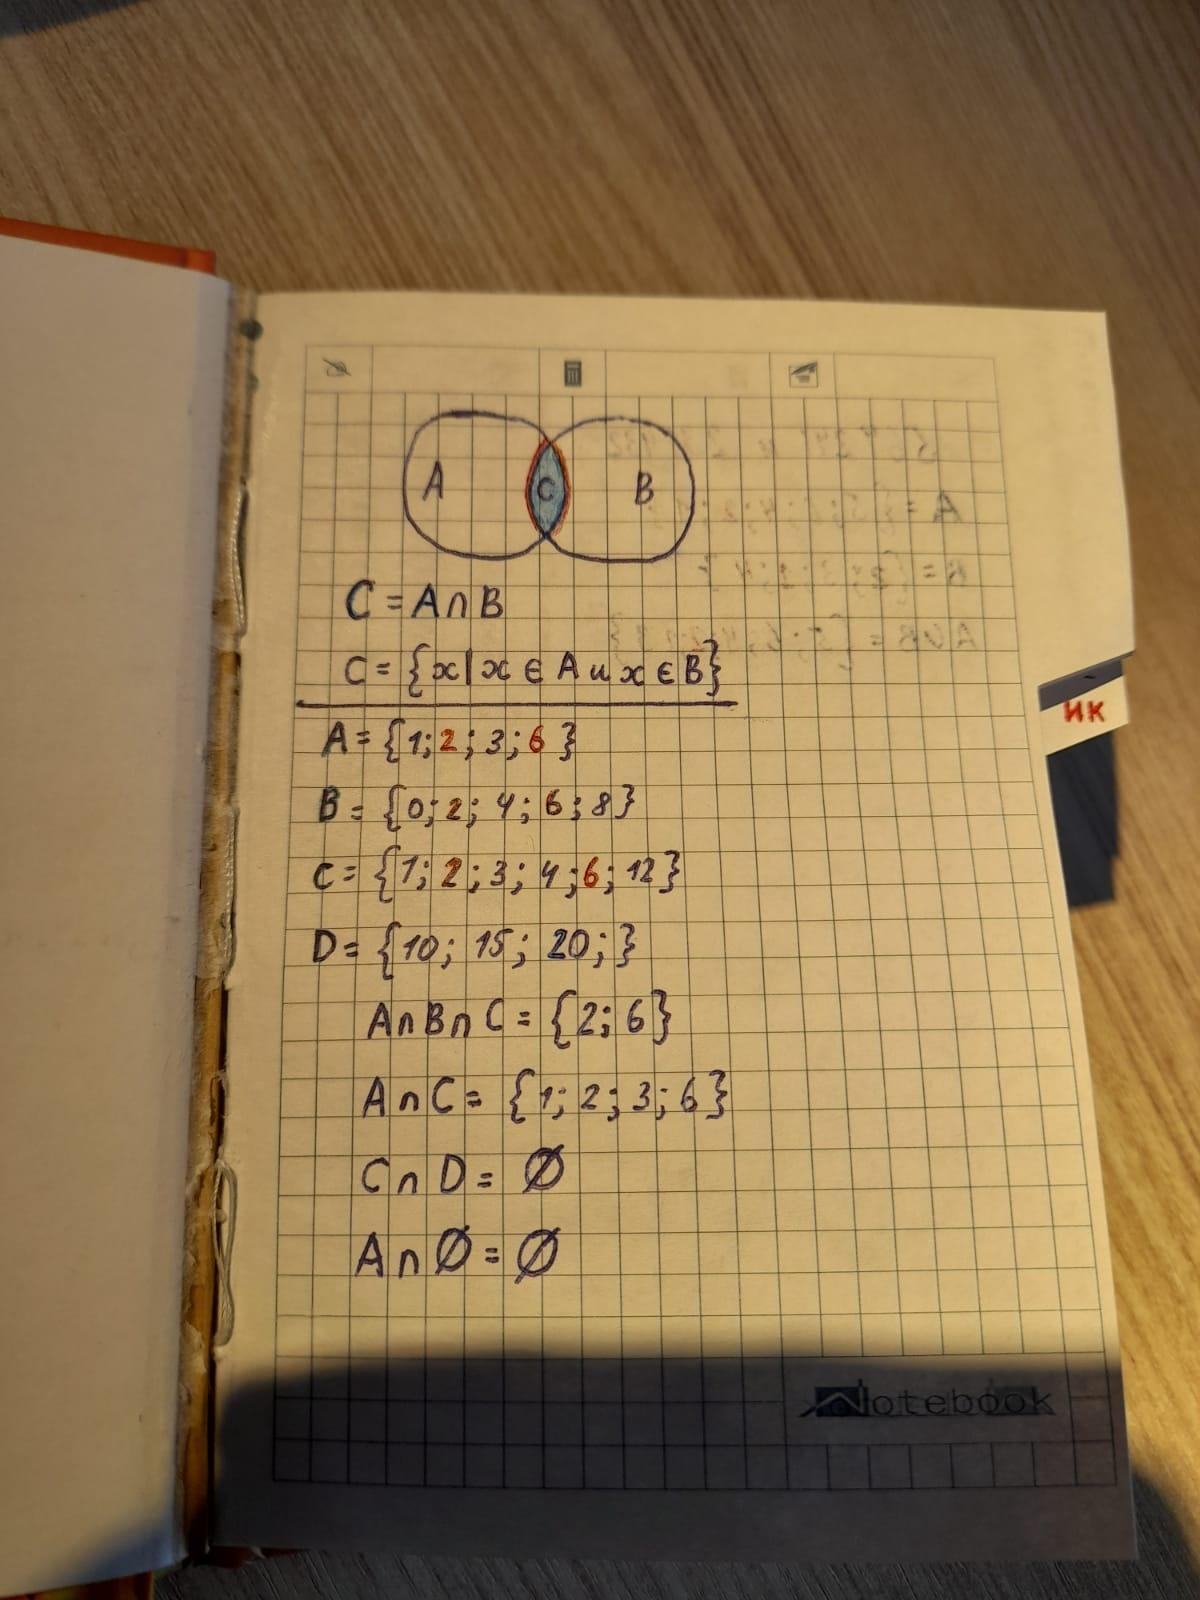 A C B
C = A∩B
C = {x|x ∈ A и x ∈ B}
A = {1; 2; 3; 6}
ИК
B = {0; 2; 4; 6; 8}
C = {1; 2; 3; 4; 6; 12}
D = {10; 15; 20;}
A∩B∩C = {2; 6}
A∩C = {1; 2; 3; 6}
C∩D = Ø
A∩Ø = Ø
Notebook